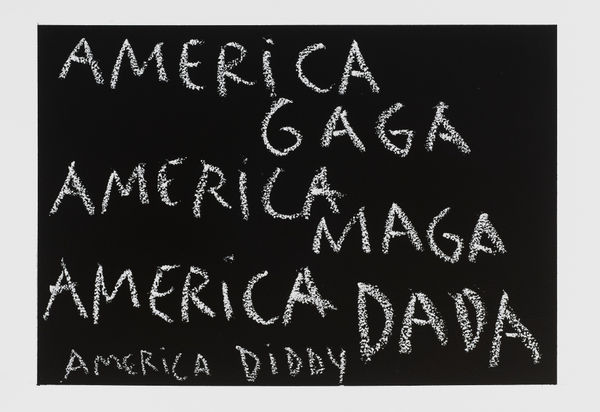 AMERiCA
GAGA
AMERICA
MAGA
AMERiCA DADA
AMERiCA DiDDY